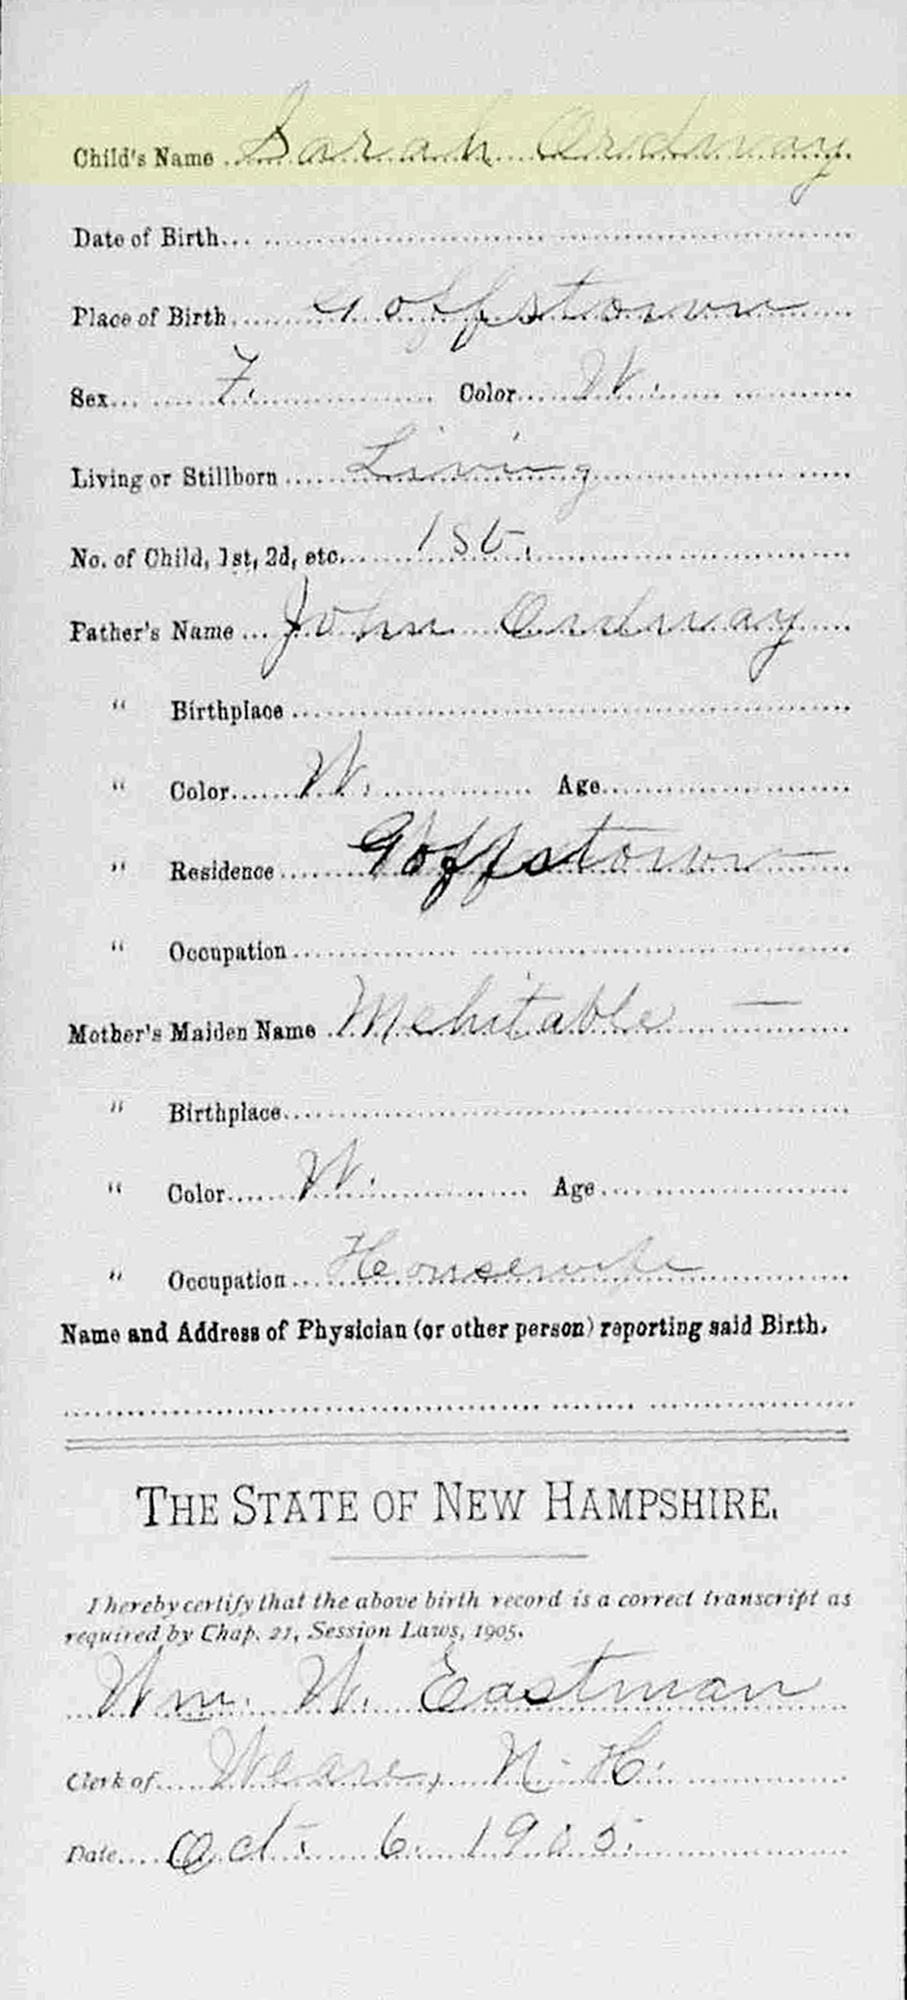 Child's Name Sarah Ordway
Date of Birth
Place of Birth Goffstown
Sex F. Color W.
Living or Stillborn Living
No. of Child, 1st, 2d, etc. 1st.
Father's Name John Ordway
" Birthplace
" Color W. Age
" Residence Goffstown
" Occupation
Mother's Maiden Name Mehitable —
" Birthplace
" Color W. Age
" Occupation Housewife
Name and Address of Physician (or other person) reporting said Birth.
THE STATE OF NEW HAMPSHIRE.
I hereby certify that the above birth record is a correct transcript as
required by Chap. 21, Session Laws, 1905.
Wm. W. Eastman
Clerk of Weare, N. H.
Date Oct. 6. 1905.